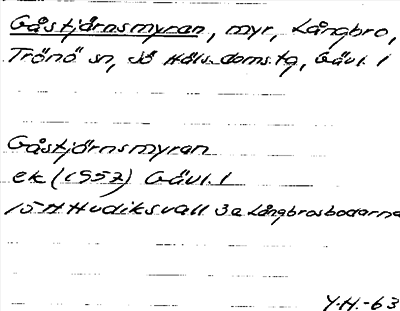 Gåstjärnsmyran, myr, Långbro,
Trönö sn, Sö Häls. doms.tg, Gävl. l
Gåstjörnsmyran
ek (1957) Gävl. l
15H Hudiksvall 3a Långbrosbodarna
Y.H.-63